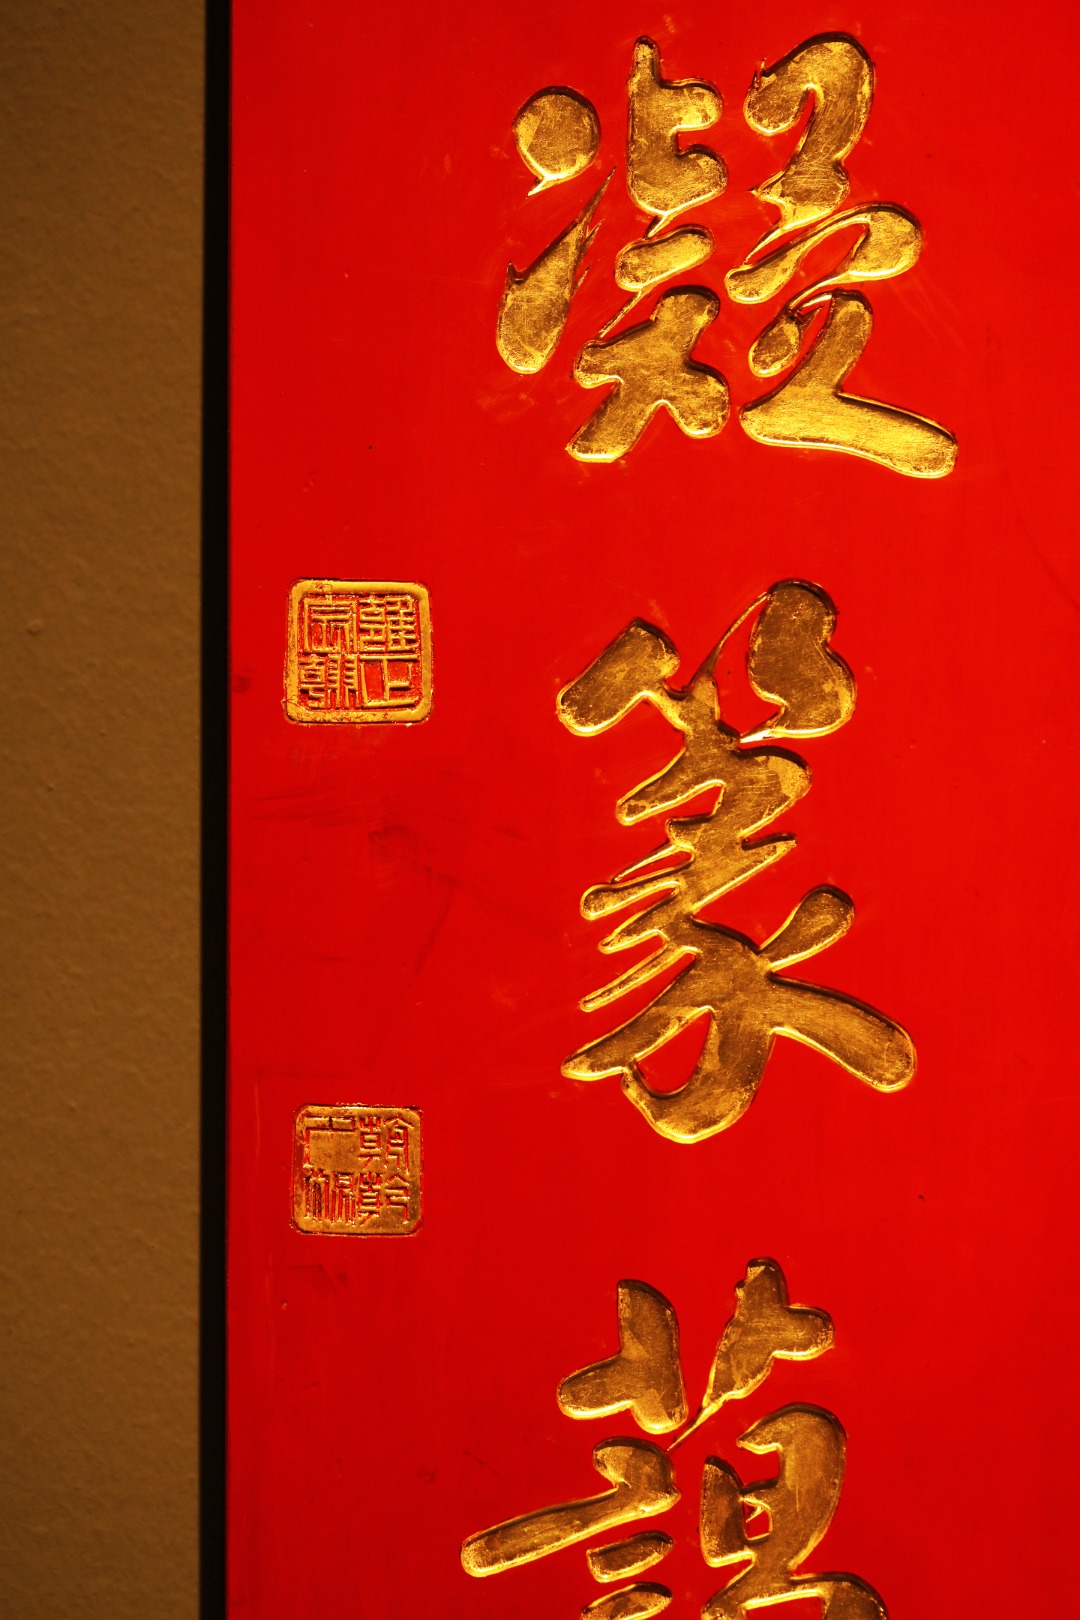 凝篆藹
雍正宸翰
朝乾夕惕